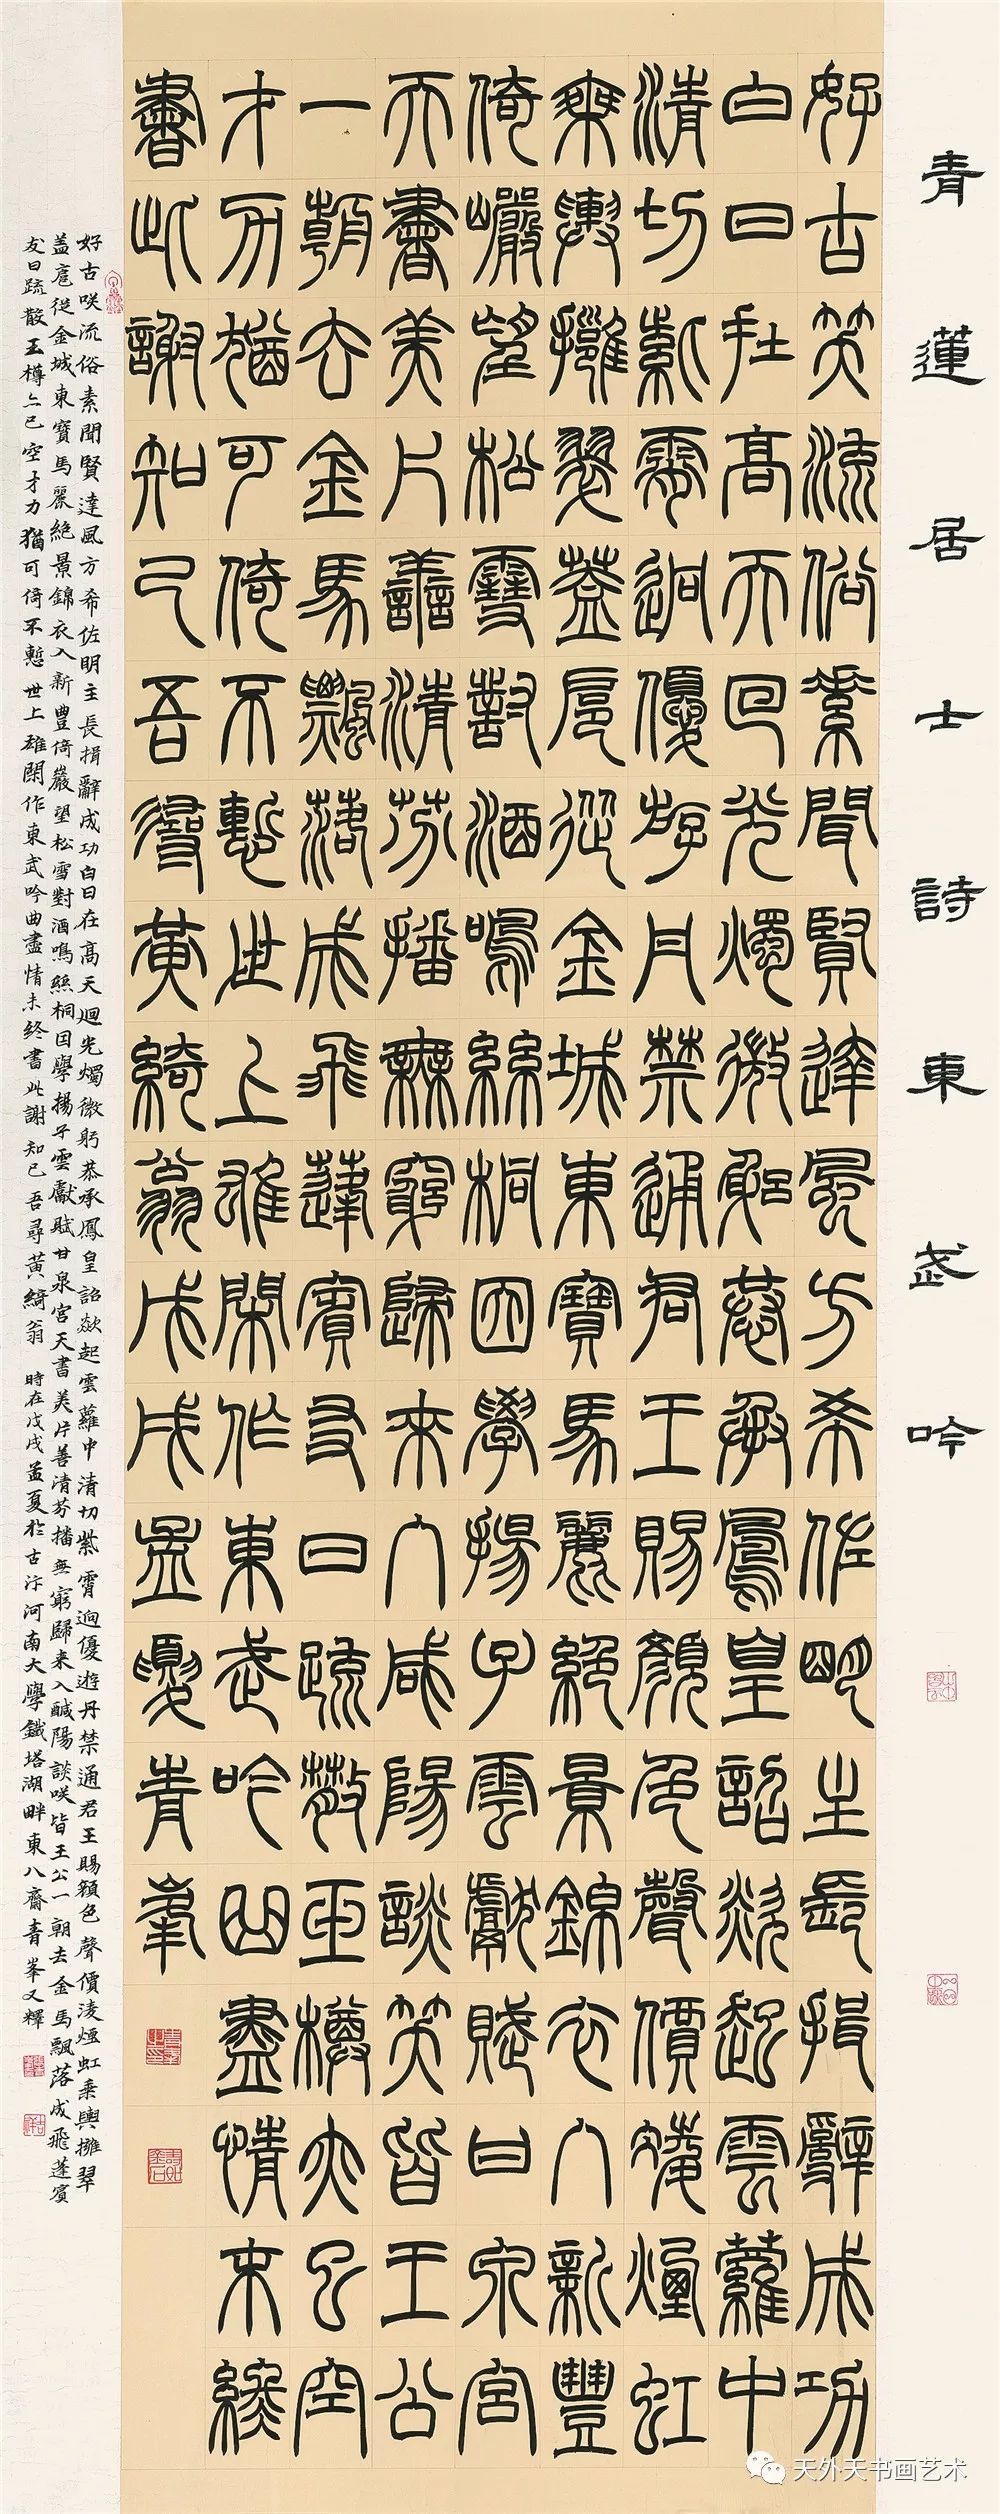 青蓮居士詩東武吟
好古笑流俗素聞賢達風方希佐明主長揖辭成功
白日在高天回光燭微躬恭承鳳皇詔欻起雲蘿中
清切紫霄迥優游丹禁通君王賜顏色聲價凌煙虹
乘輿擁翠蓋扈從金城東寶馬麗絕景錦衣入新豐
倚巖望松雪對酒鳴絲桐因學揚子雲獻賦甘泉宮
天書美片善清芬播無窮歸來入咸陽談笑皆王公
一朝去金馬飄落成飛蓬賓友日疏散玉樽亦已空
才力猶可倚不慙世上雄閑作東武吟曲盡情未終
書此謝知己吾尋黃綺翁戊戌孟夏青峯
好古咲流俗素聞賢達風方希佐明主長揖辭成功白日在高天廻光燭微躬恭承鳳皇詔欻起雲蘿中清切紫霄迥優遊丹禁通君王賜顏色聲價淩煙虹乘輿擁翠
蓋扈從金城東寶馬麗絕景錦衣入新豐倚巖望松雪對酒鳴絲桐因學揚子雲獻賦甘泉宮天書美片善清芬播無窮歸来入鹹陽談咲皆王公一朝去金馬飄落成飛蓬賓
友日疏散玉樽亦已空才力猶可倚不慙世上雄閑作東武吟曲盡情未終書此謝知己吾尋黃綺翁 時在戊戌孟夏於古汴河南大學鐵塔湖畔東八齋青峯又釋
天外天书画艺术